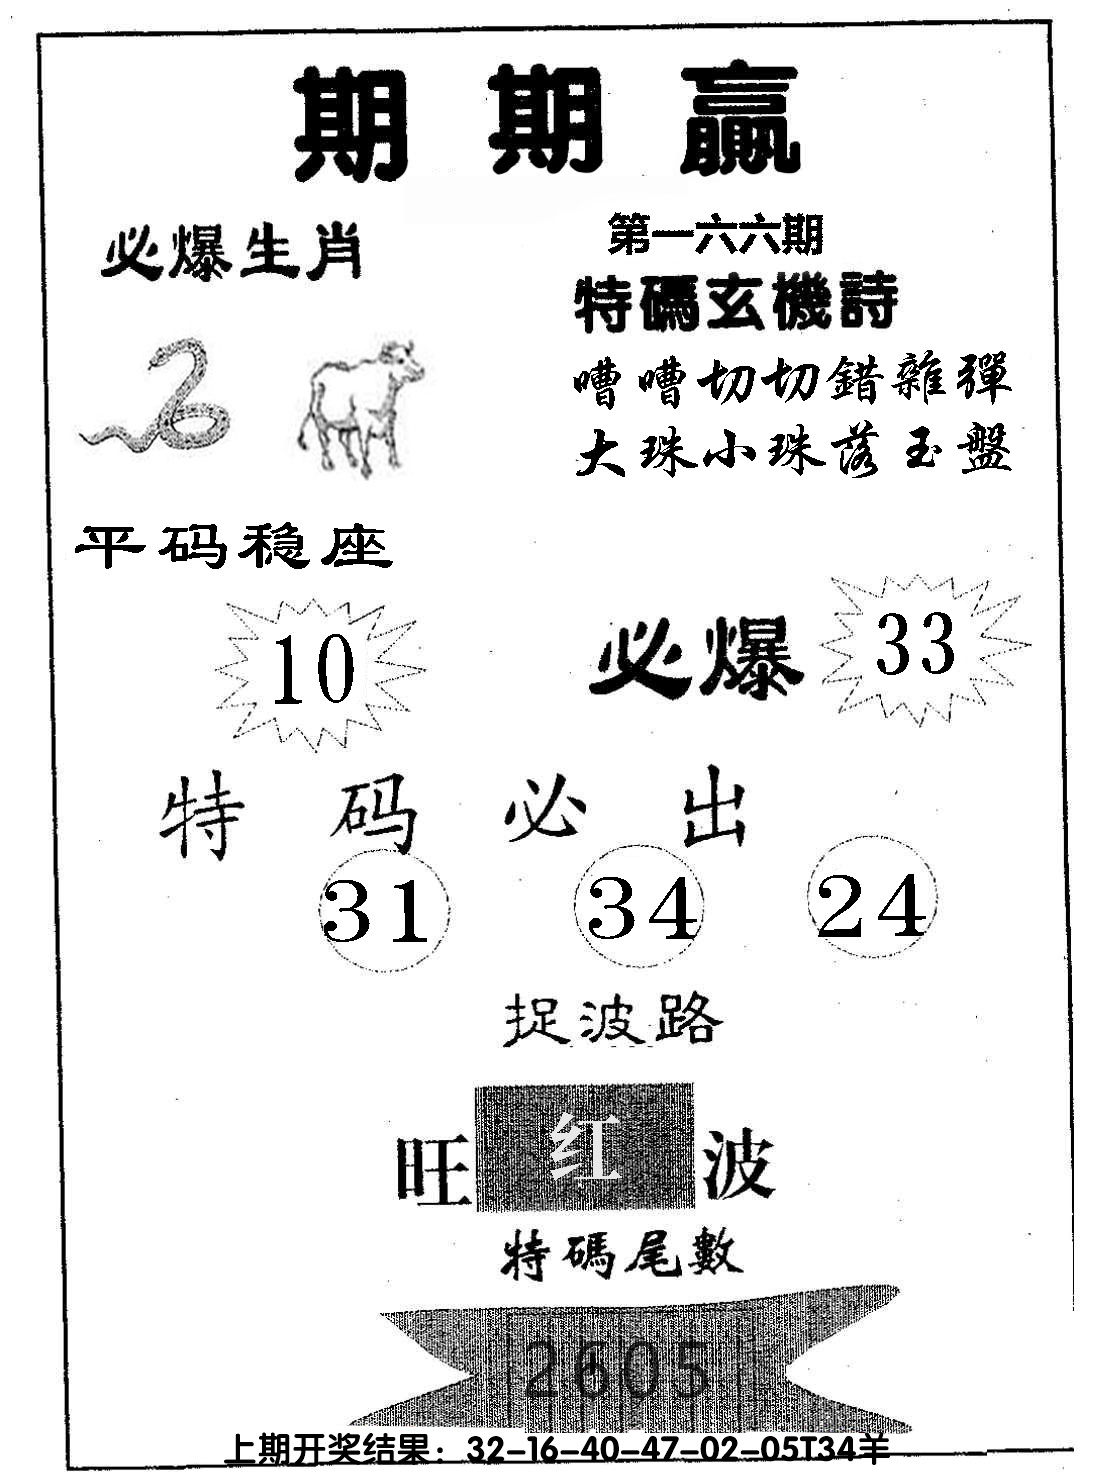 期期赢
必爆生肖
第一六六期
特碼玄機詩
嘈嘈切切錯雜彈
大珠小珠落玉盤
平码稳座
10
必爆
33
特码必出
31 34 24
捉波路
旺红波
特碼尾數
2605
上期开奖结果：32-16-40-47-02-05T34羊